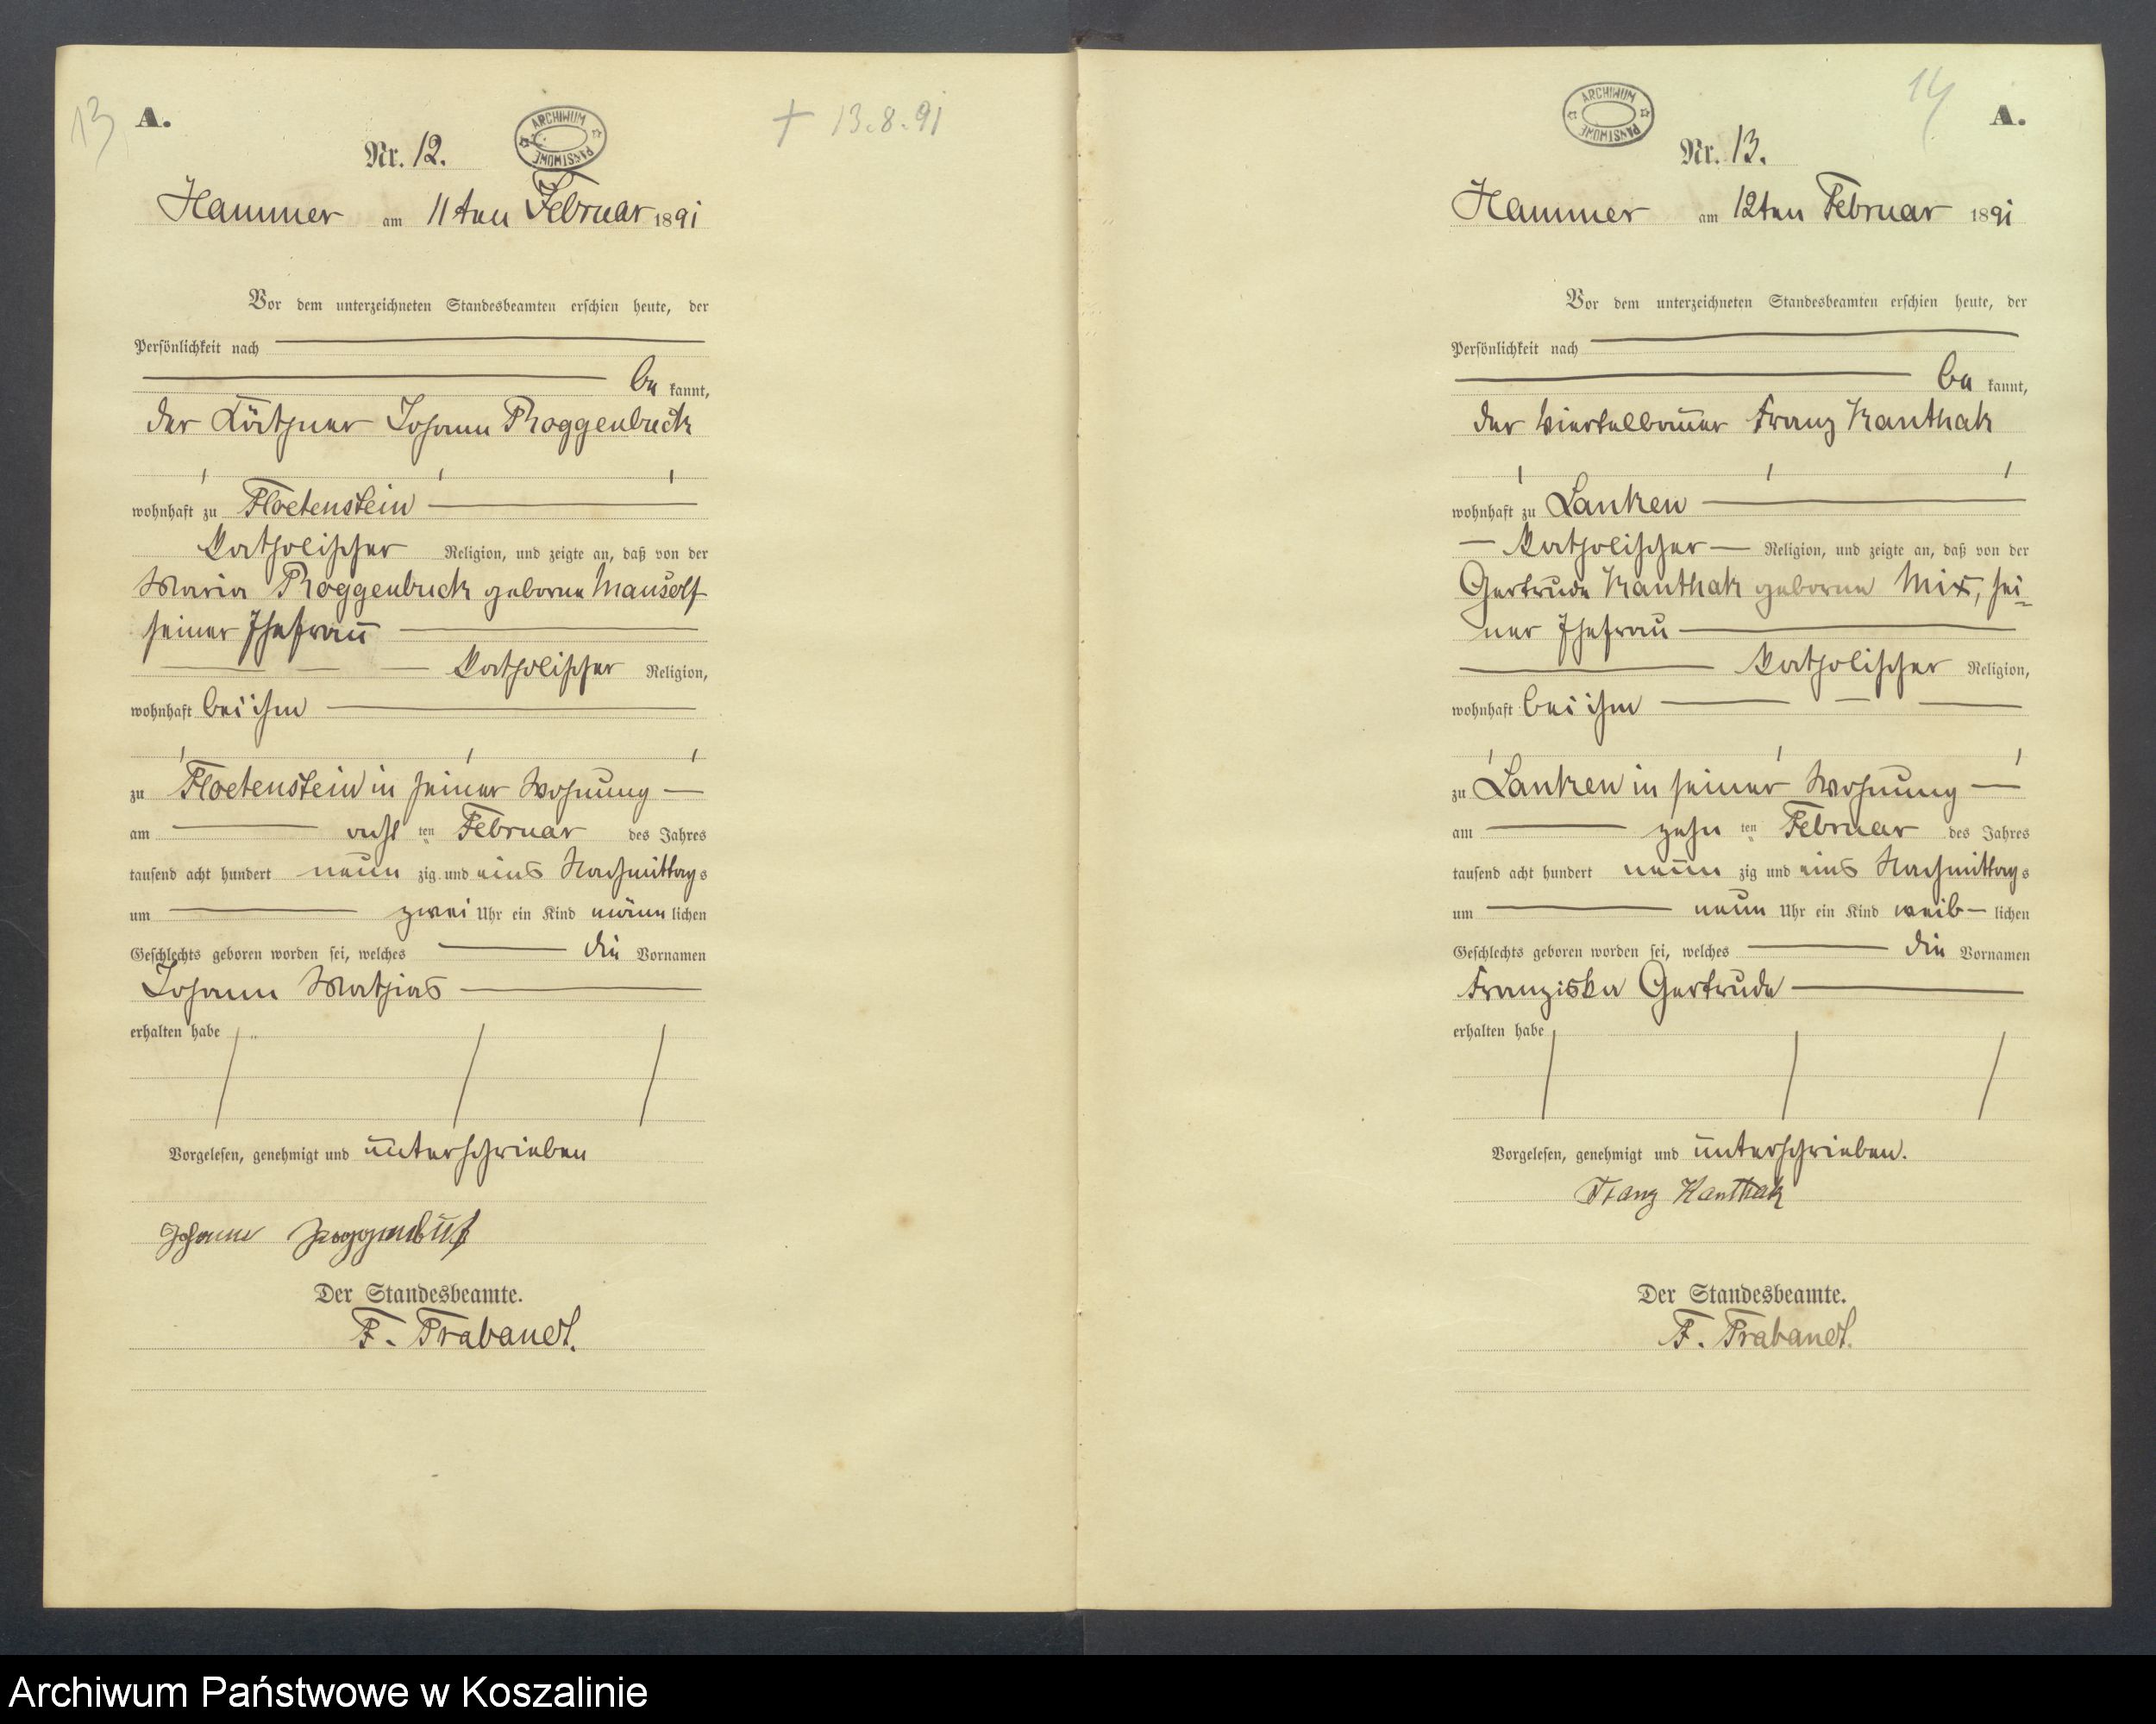 13
A.
ARCHIWUM PAŃSTWOWE
+ 13.8.91
Nr. 12.
Hammer am 11ten Februar 1891
Vor dem unterzeichneten Standesbeamten erschien heute, der
Persönlichkeit nach
be kannt,
der Käthner Johann Roggenbuck
wohnhaft zu Floetenstein
katholischer Religion, und zeigte an, daß von der
Maria Roggenbuck geborne Mausolf
seiner Ehefrau
katholischer Religion,
wohnhaft bei ihm
zu Floetenstein in seiner Wohnung
am acht ten Februar des Jahres
tausend acht hundert neun zig und eins Nachmittags
um zwei Uhr ein Kind männ lichen
Geschlechts geboren worden sei, welches die Vornamen
Johann Mathias
erhalten habe
Vorgelesen, genehmigt und unterschrieben
Johann Roggenbuck
Der Standesbeamte.
F. Prabandt.
14
A.
ARCHIWUM PAŃSTWOWE
Nr. 13.
Hammer am 12ten Februar 1891
Vor dem unterzeichneten Standesbeamten erschien heute, der
Persönlichkeit nach
be kannt,
der Viertelbauer Franz Kanthak
wohnhaft zu Lanken
katholischer Religion, und zeigte an, daß von der
Gertrude Kanthak geborne Mix, sei-
ner Ehefrau
katholischer Religion,
wohnhaft bei ihm
zu Lanken in seiner Wohnung
am zehn ten Februar des Jahres
tausend acht hundert neun zig und eins Nachmittags
um neun Uhr ein Kind weib- lichen
Geschlechts geboren worden sei, welches die Vornamen
Franziska Gertrude
erhalten habe
Vorgelesen, genehmigt und unterschrieben.
Franz Kanthak
Der Standesbeamte.
F. Prabandt.
Archiwum Państwowe w Koszalinie